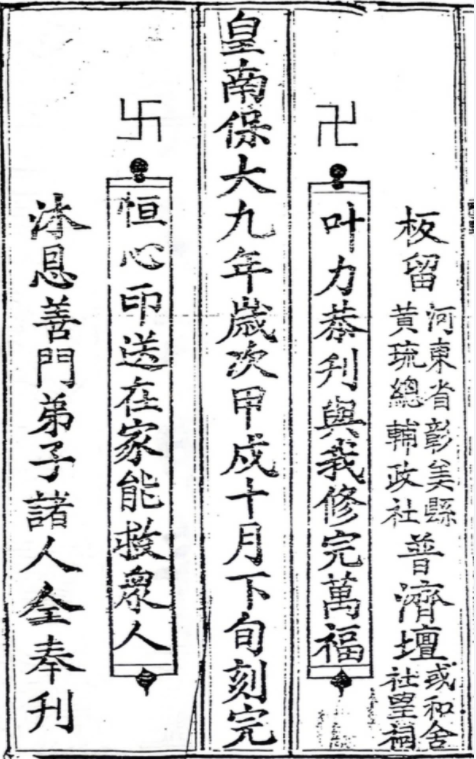 板留
河東省彰美縣
黃琉總輔政社
普濟壇
或和舍
社望祠
卍
叶力恭刋與我修完萬福
皇南保大九年歲次甲戌十月下旬刻完
卐
恒心印送在家能救衆人
沐恩善門弟子諸人仝奉刋